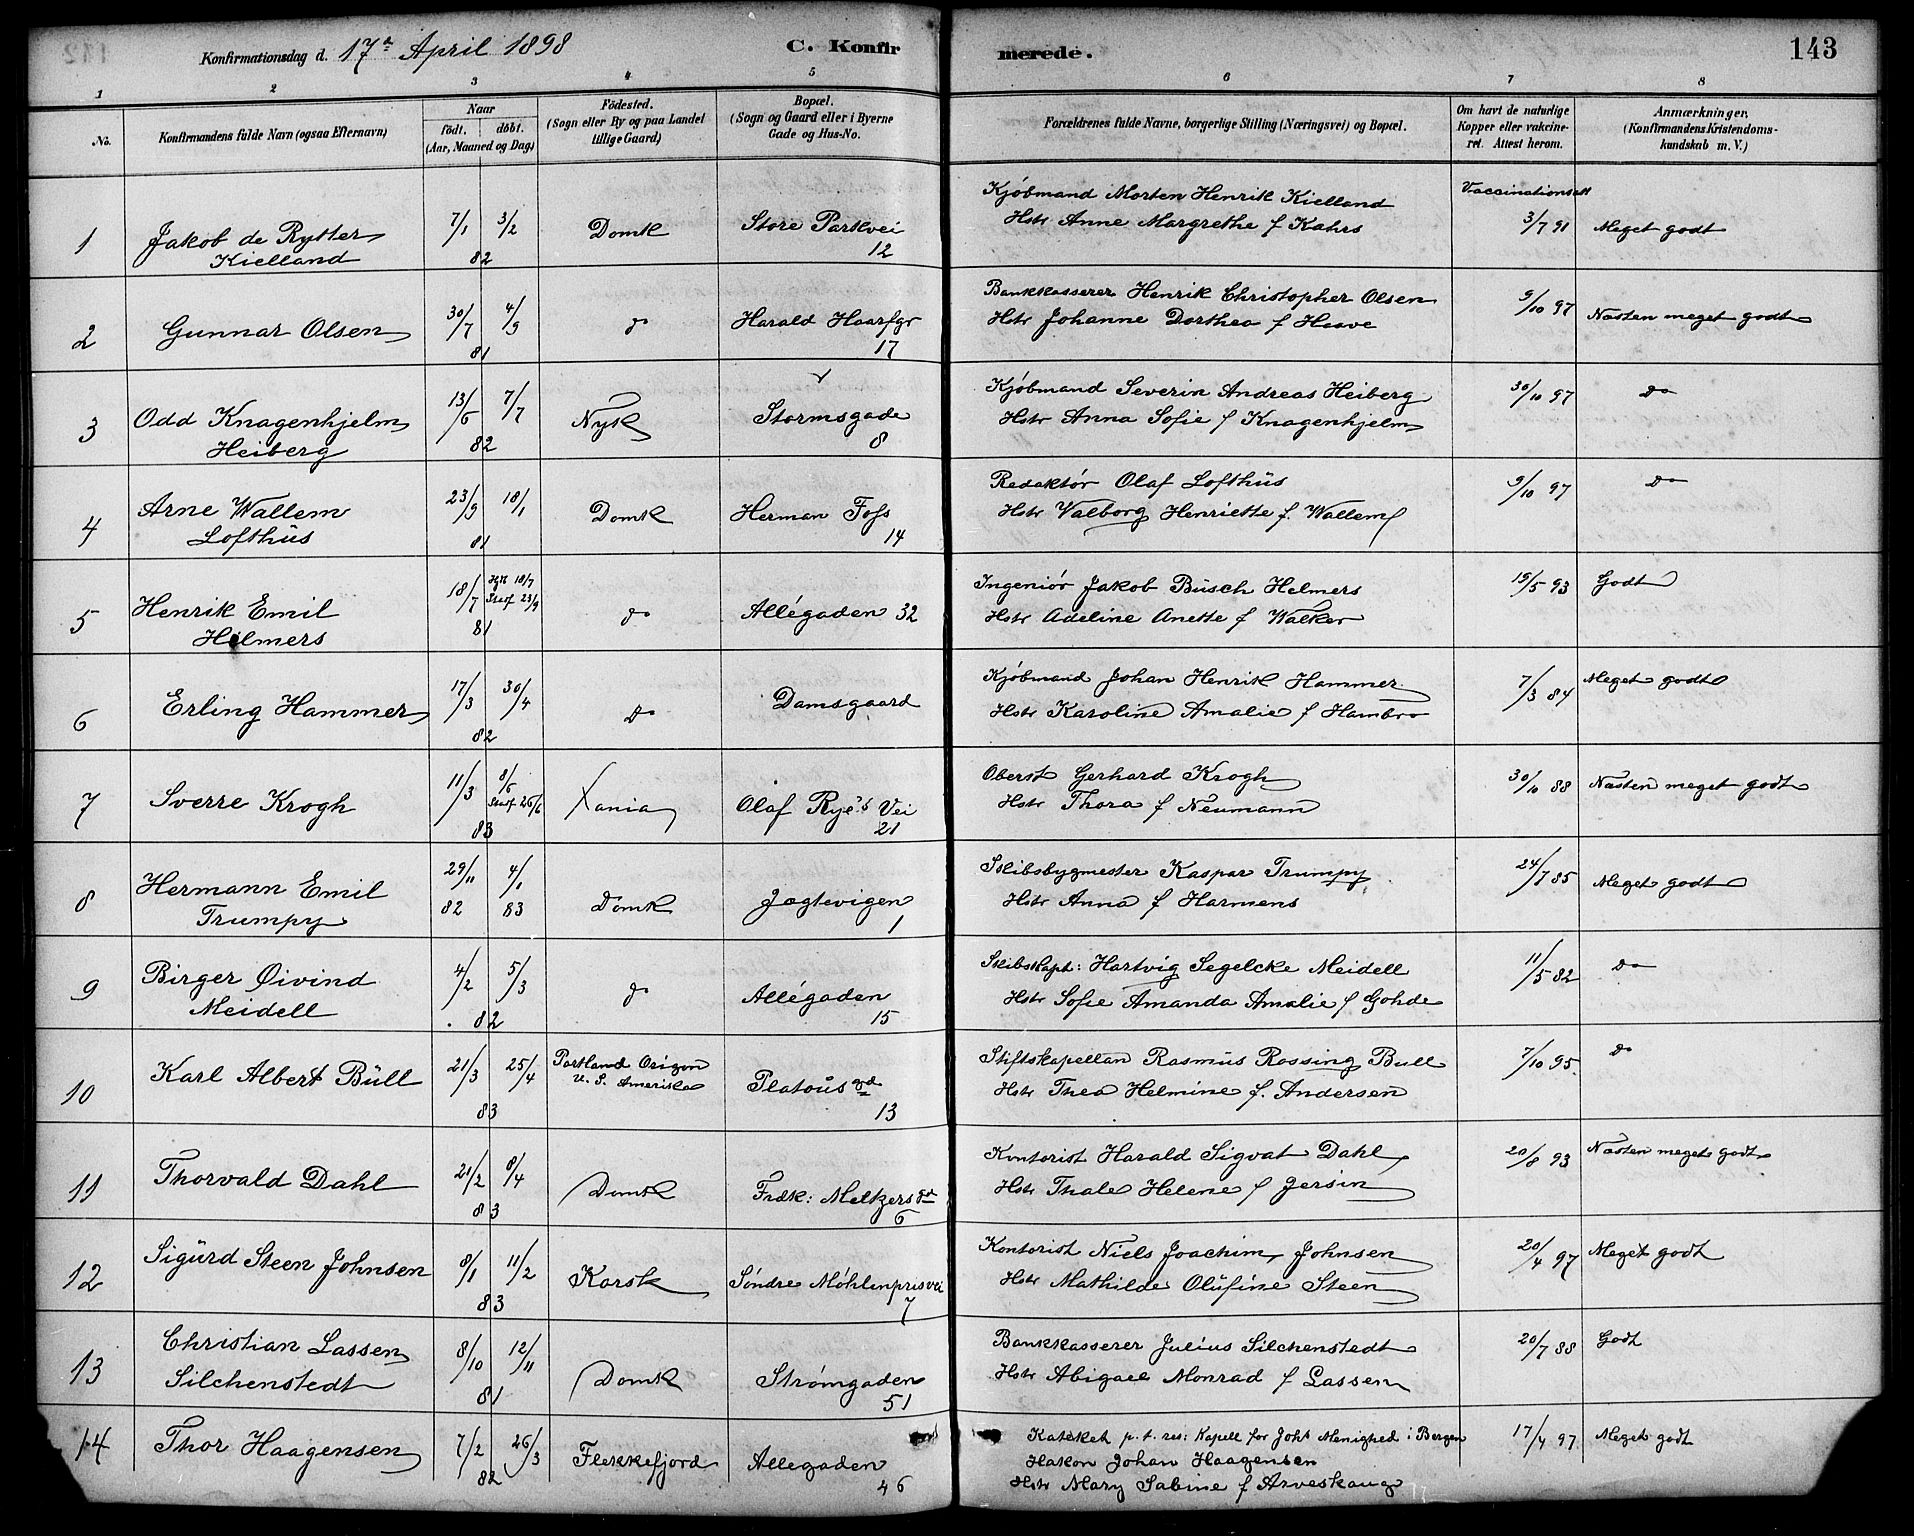 Konfirmationsdag d. 17de April 1898 C. Konfir merede. 143
1 2 3 4 5 6 7 8
No. Konfirmandens fulde Navn (ogsaa Efternavn) Naar født. døbt. (Aar, Maaned og Dag) Fødested. (Sogn eller By og paa Landet tillige Gaard) Bopæl. (Sogn og Gaard eller i Byerne Gade og Hus-No. Forældrenes fulde Navne, borgerlige Stilling (Næringsvei) og Bopæl. Om havt de naturlige Kopper eller vakcineret. Attest herom. Anmærkninger. (Konfirmandens Kristendomskundskab m. V.)
Kjøbmand Morten Henrik Kielland Vaccinationsatt
1 Jakob de Rytter 7/1 3/2 Domk Store Parkvei Hstr Anne Margrethe f Kahrs 3/7 91 Meget godt
Kielland 82 12
Bankkasserer Henrik Christopher Olsen
2 Gunnar Olsen 30/7 4/9 do Harald Haarfgr Hstr Johanne Dorthea f Haave 9/10 97 Næsten meget godt
81 17
Kjøbmand Severin Andreas Heiberg
3 Odd Knagenhjelm 13/6 7/7 Nyk Stormsgade Hstr Anna Sofie f Knagenhjelm 30/10 97 do
Heiberg 82 8
Redaktør Olaf Lofthus
4 Arne Wallem 23/9 18/1 Domk Herman Foss Hstr Valborg Henriette f. Wallem 9/10 97 do
Lofthus 81 14
Ingeniør Jakob Busch Helmers
5 Henrik Emil 18/7 Hjd 18/7 Stadf 23/9 do Allégaden 32 Hstr Adeline Anette f Walker 15/5 93 Godt
Helmers 81
Kjøbmand Johan Henrik Hammer
6 Erling Hammer 17/3 30/4 do Damsgaard Hstr Karoline Amalie f Hambro 7/3 84 Meget godt
82
Oberst Gerhard Krogh
7 Sverre Krogh 11/3 8/6 Stadf 26/6 Xania Olaf Rye's Vei Hstr Thora f Neumann 30/10 88 Næsten meget godt
83 21
Skibsbygmester Kaspar Trumpy
8 Hermann Emil 29/11 4/1 Domk Jægtevigen Hstr Anna f Harmens 24/7 85 Meget godt
Trumpy 82 83 1
Skibskapt: Hartvig Segelcke Meidell
9 Birger Øivind 4/2 5/3 do Allégaden Hstr Sofie Amanda Amalie f Gohde 11/5 82 do
Meidell 82 15
Stiftskapellan Rasmus Rossing Bull
10 Karl Albert Bull 21/3 25/4 Portland Origon U. S. Amerika Platous gd Hstr Thea Helmine f. Andersen 7/10 95. do
83 13
Kontorist Harald Sigvat Dahl
11 Thorvald Dahl 21/2 8/4 Domk Fredk: Meltzers gd Hstr Thale Helene f Jersin 20/8 93 Næsten meget godt
83 6
Kontorist Niels Joachim Johnsen
12 Sigurd Steen Johnsen 8/1 11/2 Korsk Søndre Møhlenprisvei Hstr Mathilde Olufine Steen 20/4 97 Meget godt
83 7
Bankkasserer Julius Silchenstedt
13 Christian Lassen 8/10 12/11 Domk Strømgaden Hstr Abigael Monrad f Lassen 20/7 88 Godt
Silchenstedt 81 51
Kateket p. t. res: Kapell for Joh Menighed i Bergen
14 Thor Haagensen 7/2 26/3 Flekkefjord Allegaden Hakon Johan Haagensen 17/4 97 Meget godt
82 46 Hstr Mary Sabine f Arveskaug